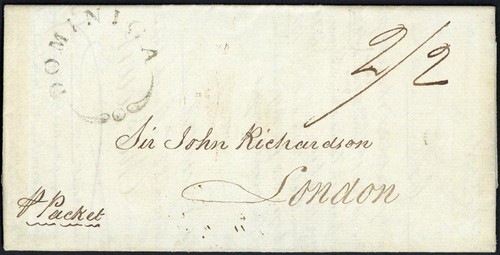 DOMINICA
2/2
Sir John Richardson
London
℔ Packet